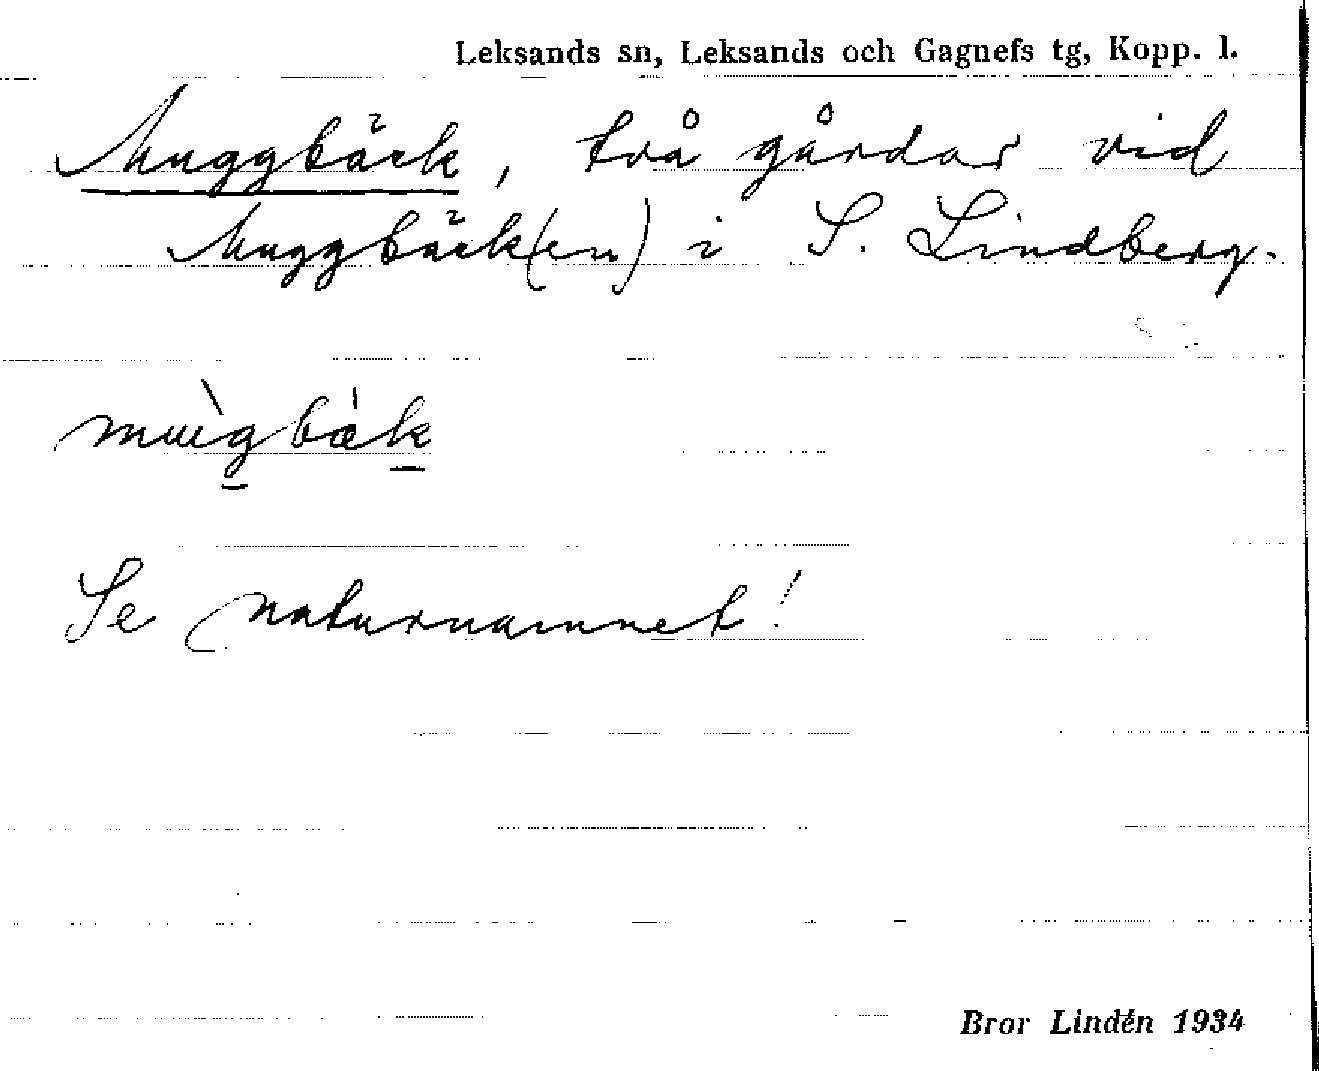 Leksands sn, Leksands och Gagnefs tg, Kopp. l.
Muggbäck, två gårdar vid
Muggbäck(en) i S. Lindberg.
mùgbàk
Se naturnamnet!
Bror Lindén 1934